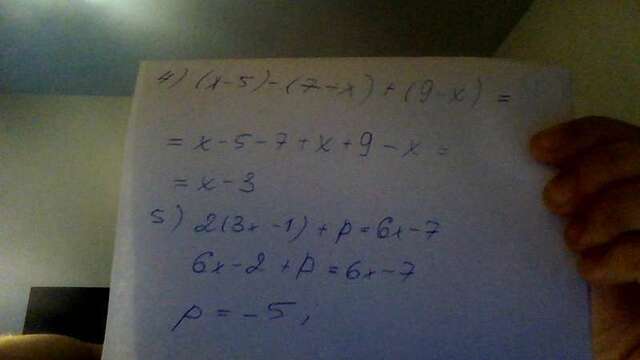 4) (x-5)-(7-x)+(9-x) =
= x-5-7+x+9-x =
= x-3
5) 2(3x-1)+p=6x-7
6x-2+p=6x-7
p=-5;